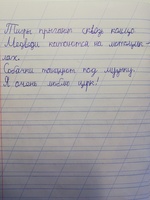 Тигры прыгают сквозь кольцо.
Медведи катаются на мотоцик-
лах.
Собачки танцуют под музыку.
Я очень люблю цирк!